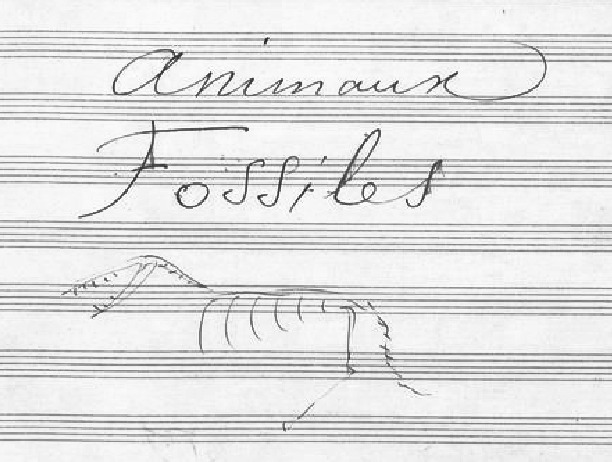 Animaux
Fossiles